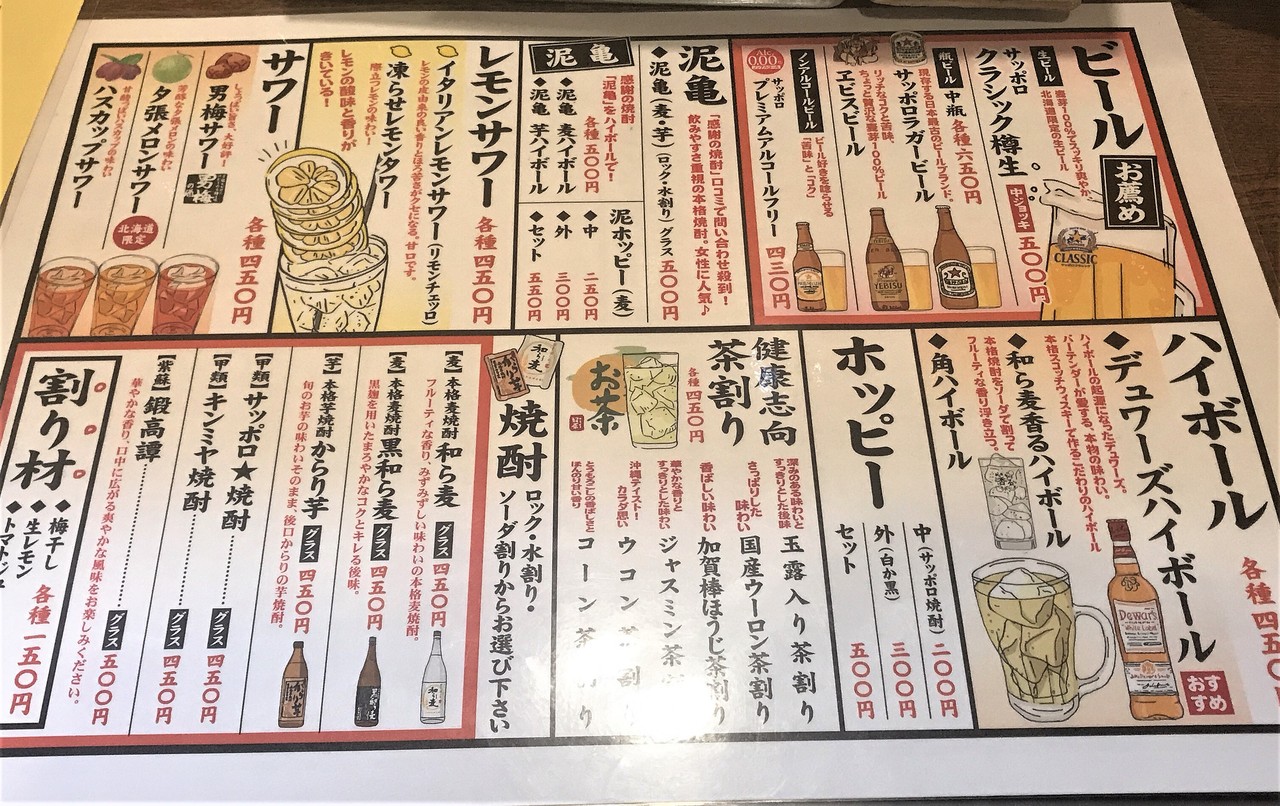 ビール
お薦め
生ビール
麦芽100%でスッキリ爽やか。
北海道限定の生ビール
サッポロ
クラシック樽生
中ジョッキ
五〇〇円
CLASSIC
瓶ビール
中瓶
各種六五〇円
現存する日本最古のビールブランド。
サッポロラガービール
リッチなコクと苦味、
ちょっと贅沢な麦芽100%ビール
ヱビスビール
YEBISU
ノンアルコールビール
ビール好きを唸らせる
「苦味」と「コク」
Alc.
0.00%
サッポロ
プレミアムアルコールフリー
四三〇円
泥亀
「感謝の焼酎」口コミで問い合わせ殺到!
飲みやすさ重視の本格焼酎。女性に人気♪
◆泥亀(麦・芋)(ロック・水割り)グラス
五〇〇円
泥亀
感謝の焼酎
「泥亀」をハイボールで!
各種五〇〇円
◆泥亀 麦ハイボール
◆泥亀 芋ハイボール
泥ホッピー(麦)
◆中
二五〇円
◆外
三〇〇円
◆セット
五五〇円
レモンサワー
各種四五〇円
イタリアンレモンサワー(リモンチェッロ)
レモンの皮由来の良い香りとほろ苦さがクセになる。甘口です。
凍らせレモンタワー
際立つレモンの味わい!
レモンの酸味と香りが
きいている!
サワー
各種四五〇円
しょっぱい旨さ、大好評!
男梅サワー
男梅
芳醇な夕張メロンの味わい
夕張メロンサワー
北海道
限定
甘酸っぱいハスカップの味わい
ハスカップサワー
ハイボール
各種四五〇円
◆デュワーズハイボール
おすすめ
ハイボールの起源になったデュワーズ。
バーテンダーが愛する、本物の味わい。
本格スコッチウィスキーで作るこだわりのハイボール
Dewar's
White Label
◆和ら麦香るハイボール
本格焼酎をソーダで割って
フルーティな香り浮き立つ。
◆角ハイボール
ホッピー
中(サッポロ焼酎)
二〇〇円
外(白か黒)
三〇〇円
セット
五〇〇円
健康志向
茶割り
各種四五〇円
お茶
深みのある味わいと
すっきりとした後味
玉露入り茶割り
さっぱりした
味わい
国産ウーロン茶割り
香ばしい味わい
加賀棒ほうじ茶割り
華やかな香りと
すっきりとした味わい
ジャスミン茶
沖縄テイスト!
カラダ思い
ウコン茶割り
とうもろこしの香ばしさと
ほんのり甘い香り
コーン茶
り
焼酎
ロック・水割り・
ソーダ割りからお選び下さい
和ら麦
【麦】本格麦焼酎 和ら麦
グラス
四五〇円
フルーティな香り、みずみずしい味わいの本格麦焼酎。
【麦】本格麦焼酎 黒和ら麦
グラス
四五〇円
黒麹を用いたまろやかなコクとキレる後味。
【芋】本格芋焼酎 からり芋
グラス
四五〇円
旬のお芋の味わいそのまま、後口からりの芋焼酎。
【甲類】サッポロ★焼酎
グラス
四五〇円
【甲類】キンミヤ焼酎
グラス
四五〇円
【紫蘇】鍛高譚
グラス
五〇〇円
華やかな香り、口中に広がる爽やかな風味をお楽しみください。
割り材
◆梅干し
◆生レモン
◆トマトジュ
各種一五〇円